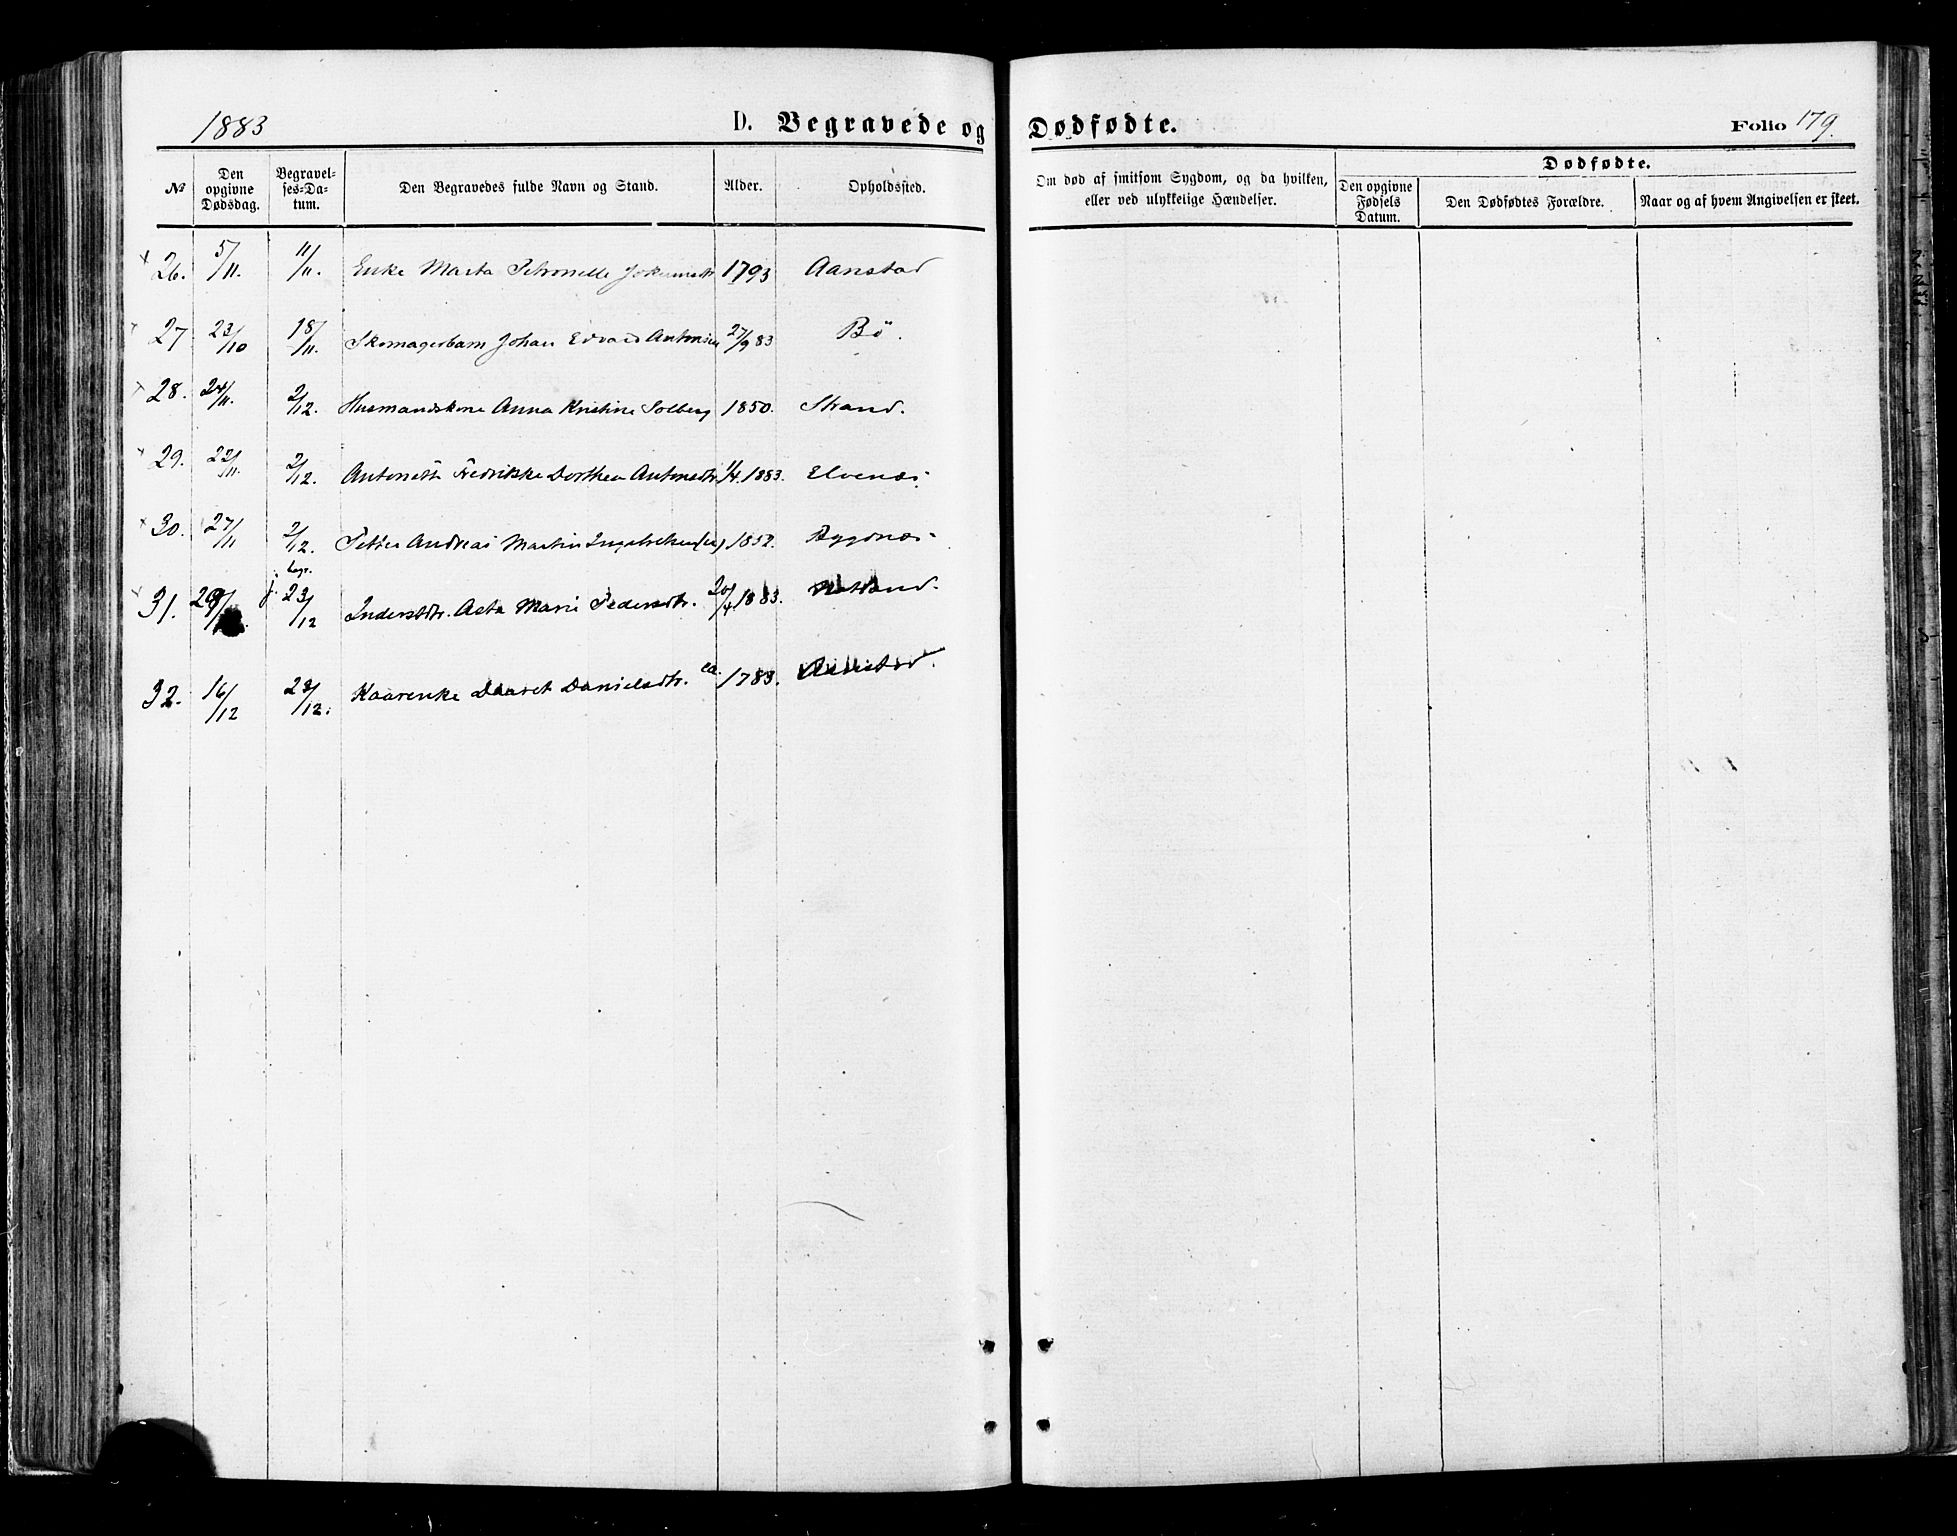 1883 D. Begravede og Dødfødte. Folio 179.
№ Den opgivne Dødsdag. Begravelses-Datum. Den Begravedes fulde Navn og Stand. Alder. Opholdssted. Om død af smitsom Sygdom, og da hvilken, eller ved ulykkelige Hændelser. Dødfødte.
Den opgivne Fødsels Datum. Den Dødfødtes Forældre. Naar og af hvem Angivelsen er skeet.
26. 5/11. 11/11. Enke Marta Petronelle 1793 Aanstad
27 23/10 18/11. Skomagerbarn Johan Edvard Antonsen 27/9 83 Bö.
28. 24/11. 2/12. Husmandskone Anna Kristine Solberg 1850. Strand.
29. 22/11. 2/12. Antonette Fredrikke Dorthea Antonsdtr 1/4 1883. Elvenæs
30. 27/11 2/12. Petter Andreas Martin 1852. Bygdnæs
31. 29/ j. begr. 23/12 Inderstdtr. Asta Marie Pedersdtr. 20/4 1883.
32. 16/12 23/12. Kaarenke Daaret Danielsdtr. ca. 1783. Aanstad.